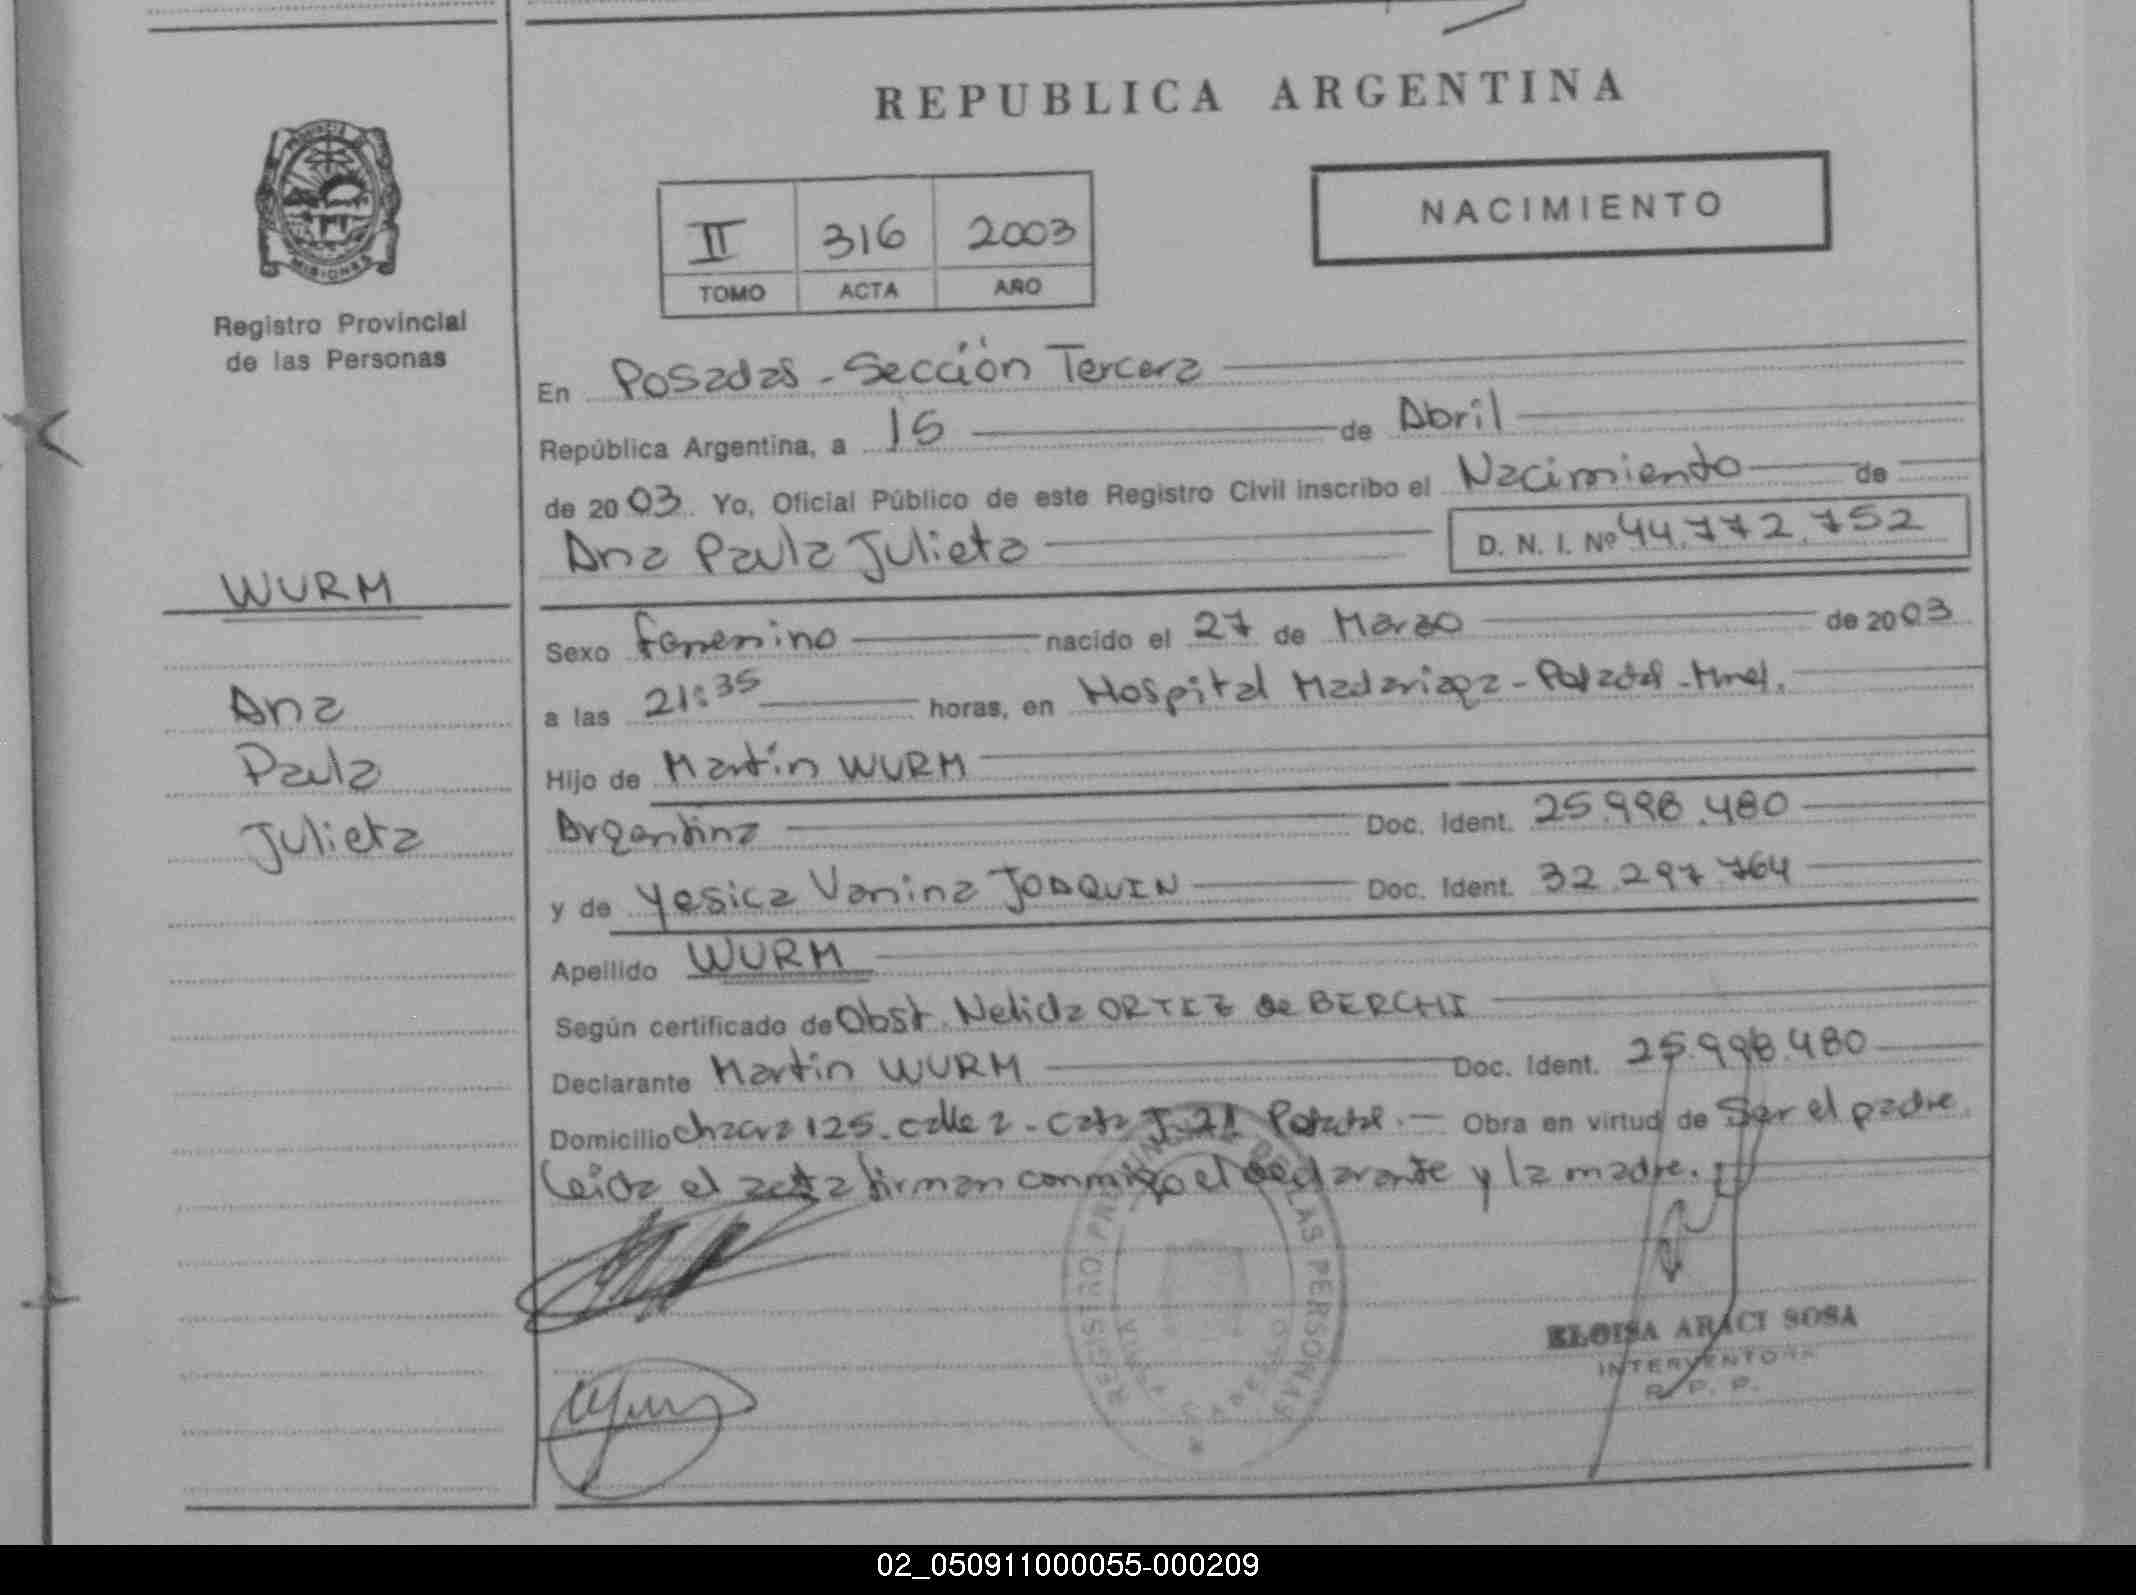 REPUBLICA ARGENTINA
NACIMIENTO
II 316 2003
TOMO ACTA AÑO
PROVINCIA
MISIONES
Registro Provincial
de las Personas
WURM
Ana
Paula
Julieta
En Posadas - Sección Tercera
República Argentina, a 15 de Abril
de 2003. Yo, Oficial Público de este Registro Civil inscribo el Nacimiento de
Ana Paula Julieta D. N. I. Nº 44.772.752
Sexo femenino nacido el 27 de Marzo de 2003
a las 21:35 horas, en Hospital Madariaga - Posadas - Mnes.
Hijo de Martín WURM
Argentina Doc. Ident. 25.998.480
y de Yesica Vanina JOAQUIN Doc. Ident. 32.297.764
Apellido WURM
Según certificado de Obst. Nelida ORTIZ de BERCHI
Declarante Martin WURM Doc. Ident. 25.998.480
Domicilio chacra 125. calle 2 - Casa J-21 Posadas. - Obra en virtud de Ser el padre.
Leida el acta firman conmigo el declarante y la madre.
REGISTRO PROVINCIAL DE LAS PERSONAS
ELOISA ARACI SOSA
INTERVENTORA
R. P. P.
02_050911000055-000209